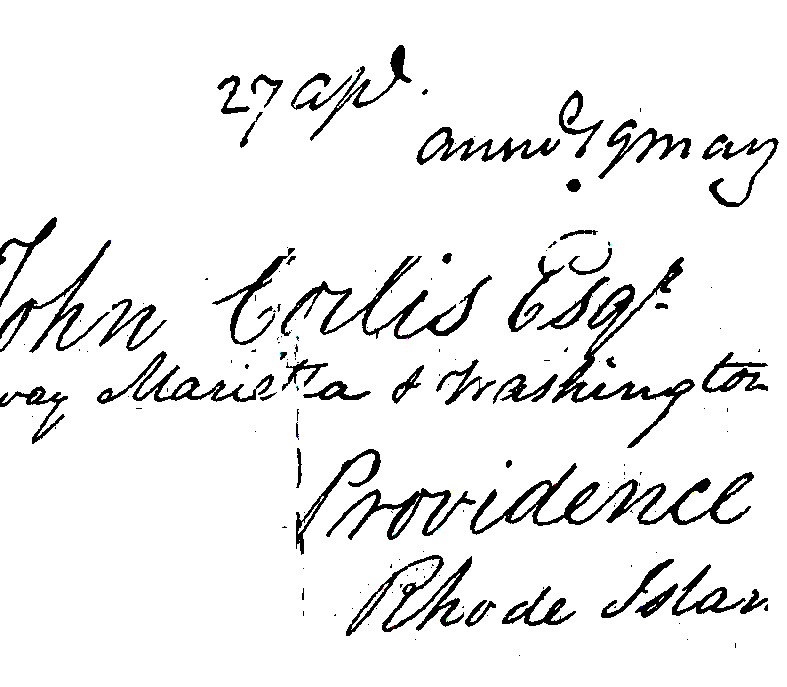 27 apl.
annd 9 may
John Corlis Esqr.
way Marietta & Washington
Providence
Rhode Islan